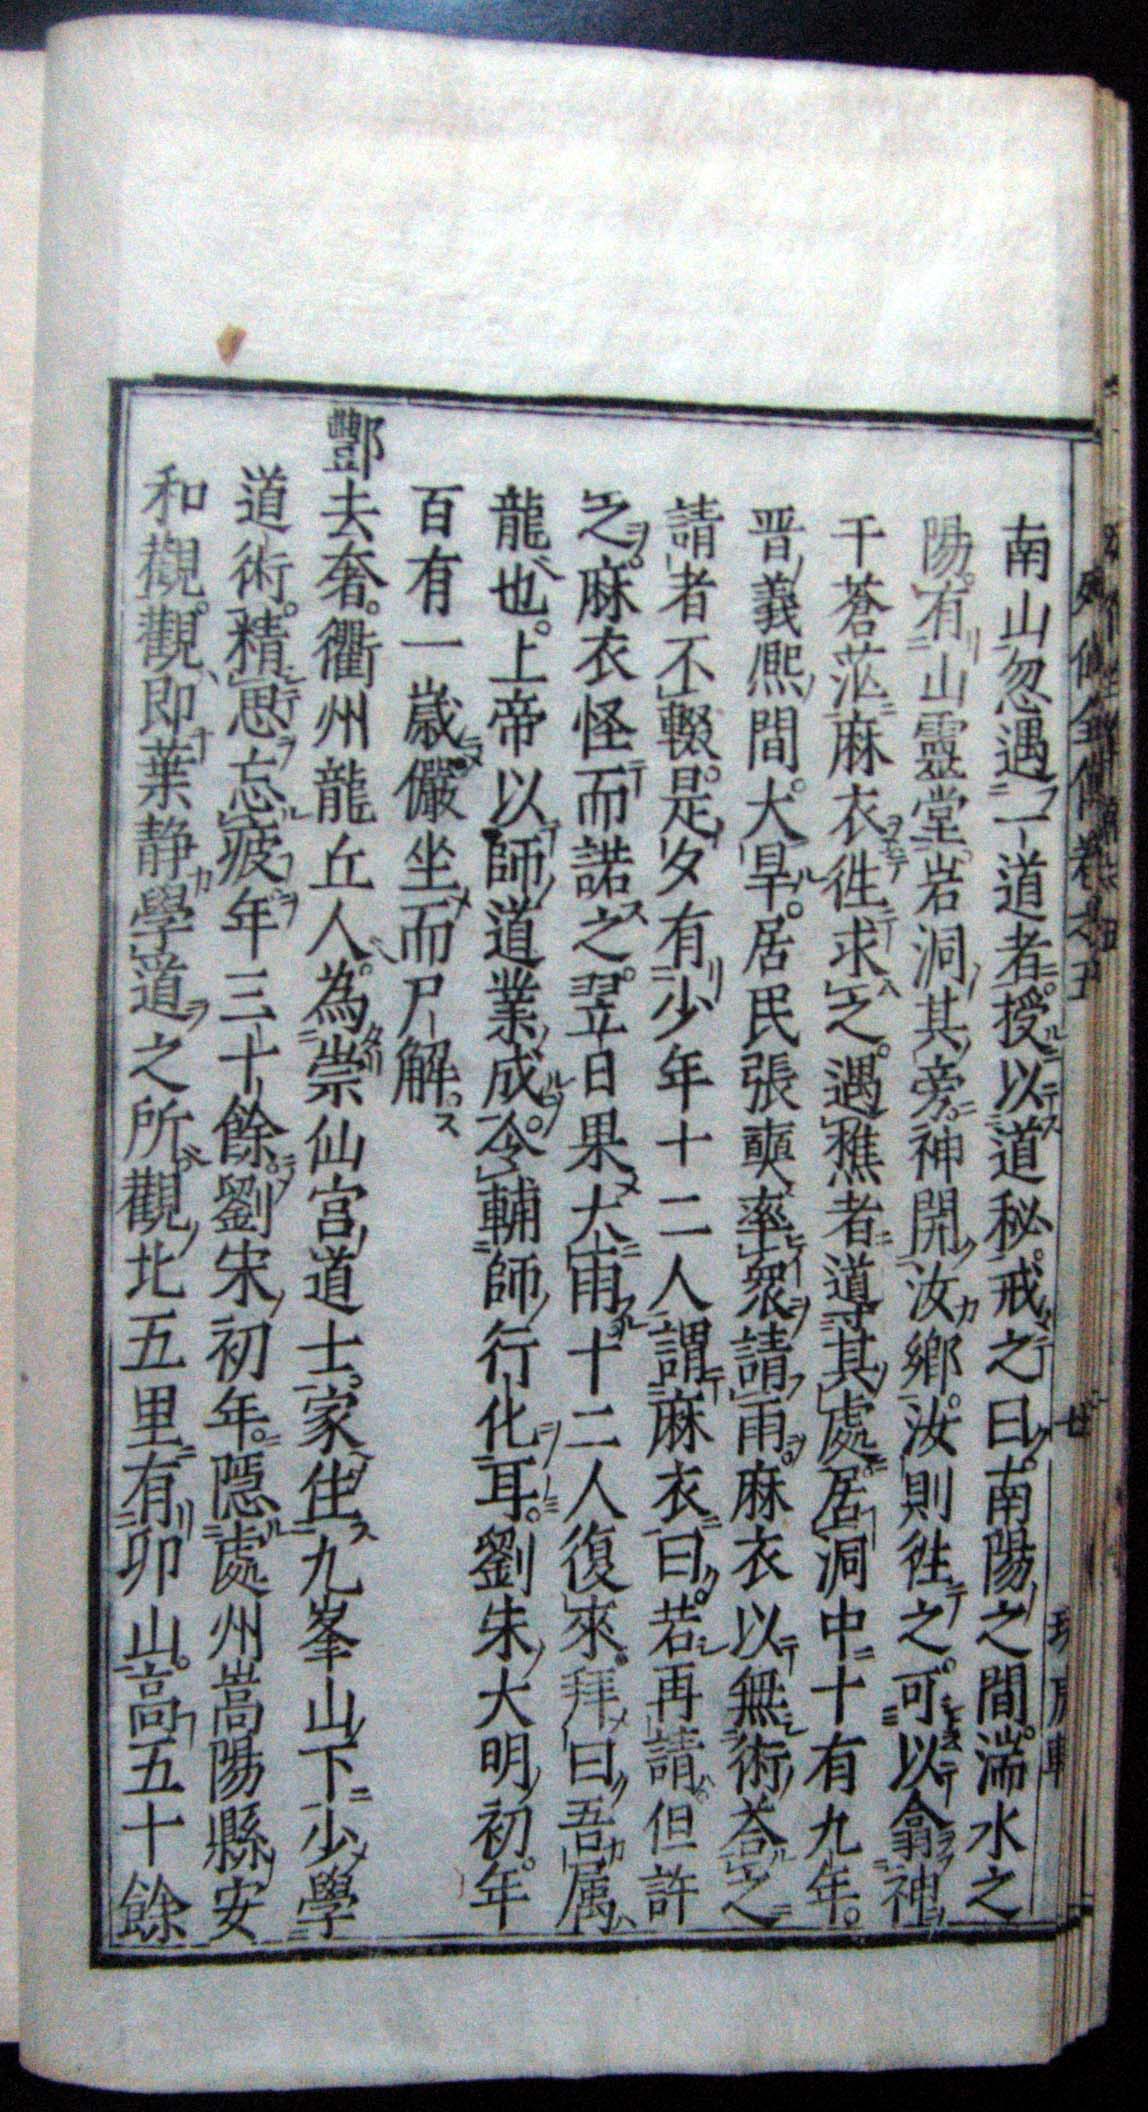 南山忽遇一道者授以道秘戒之曰南陽之間湍水之
陽有山靈堂岩洞其旁神開汝鄉汝則徃之可以翕神
于蒼茫麻衣徃求之遇樵者導其處居洞中十有九年
晋義熈間大旱居民張奭率衆請雨麻衣以無術荅之
請者不輟是夕有少年十二人謂麻衣曰若再請但許
之麻衣怪而諾之翌日果大雨十二人復來拜曰吾属
龍也上帝以師道業成令輔師行化耳劉朱大明初年
百有一歳儼坐而尸解
酆去奢衢州龍丘人為崇仙宮道士家住九峯山下少學
道術精思忘疲年三十餘劉宋初年隱處州嵩陽縣安
和觀觀即葉静學道之所觀北五里有卯山高五十餘